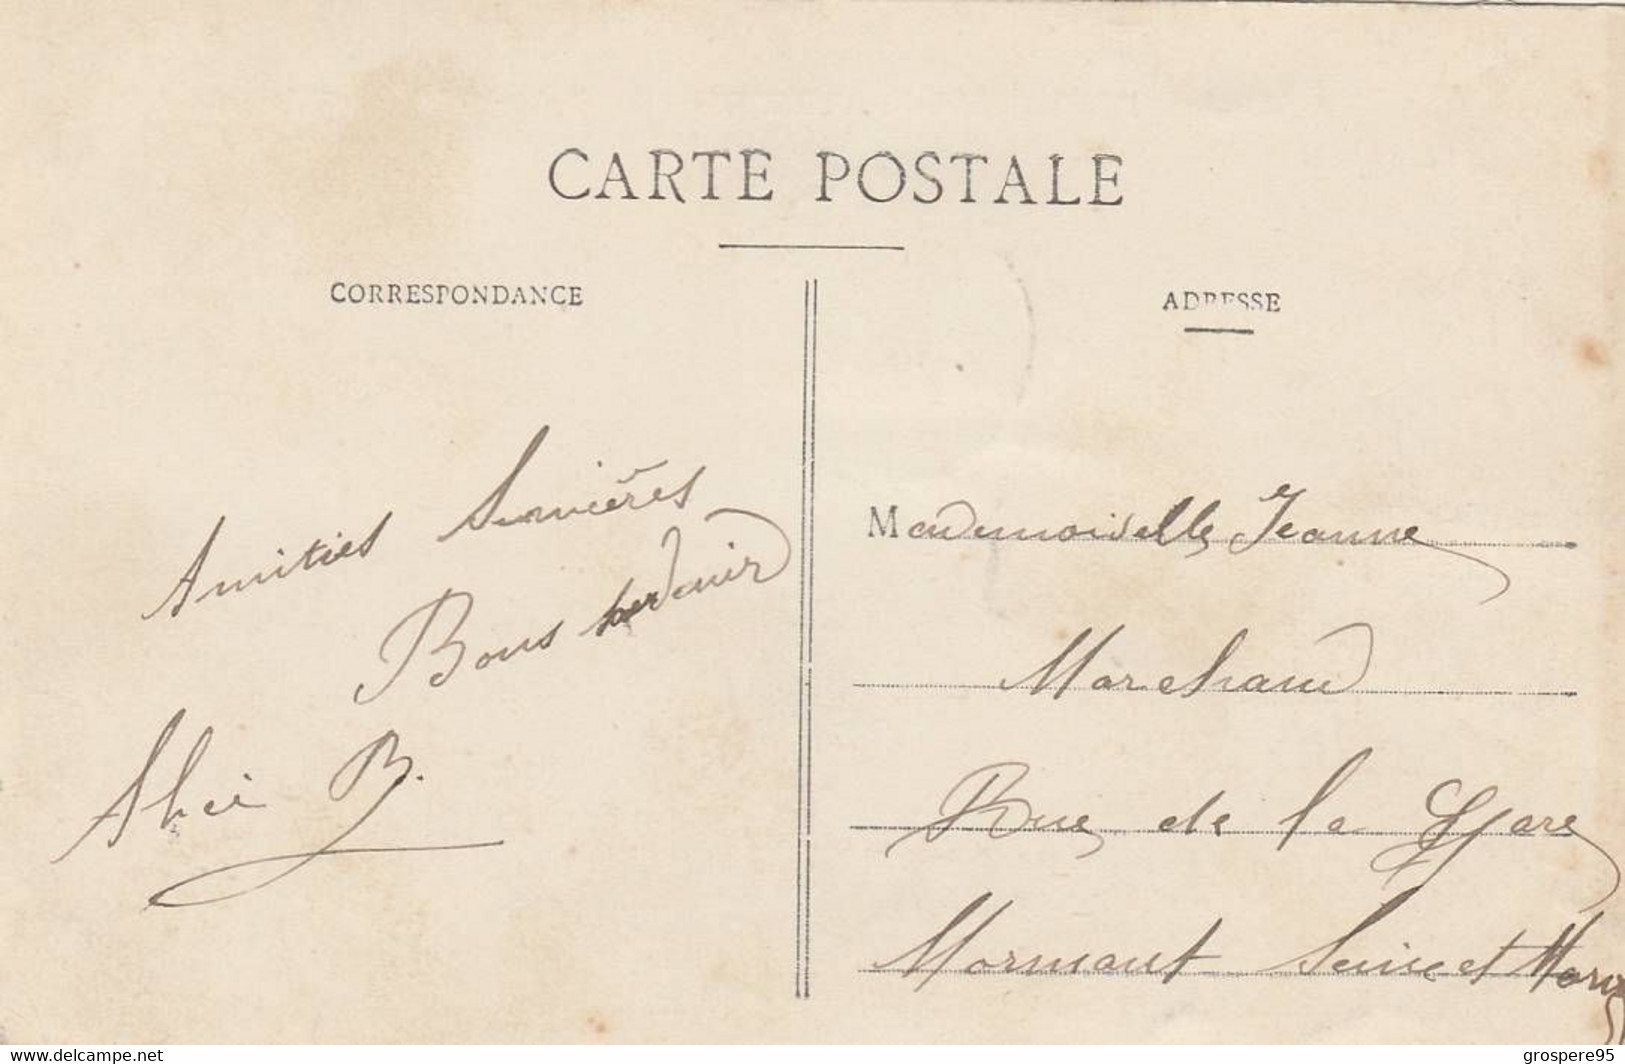 CARTE POSTALE
CORRESPONDANCE
ADRESSE
Amitiés Sincères
Bons
Alice B.
Mademoiselle Jeanne
Marchand
Rue de la Gare
Mormant Seine et Marne
www.delcampe.net
grospere95